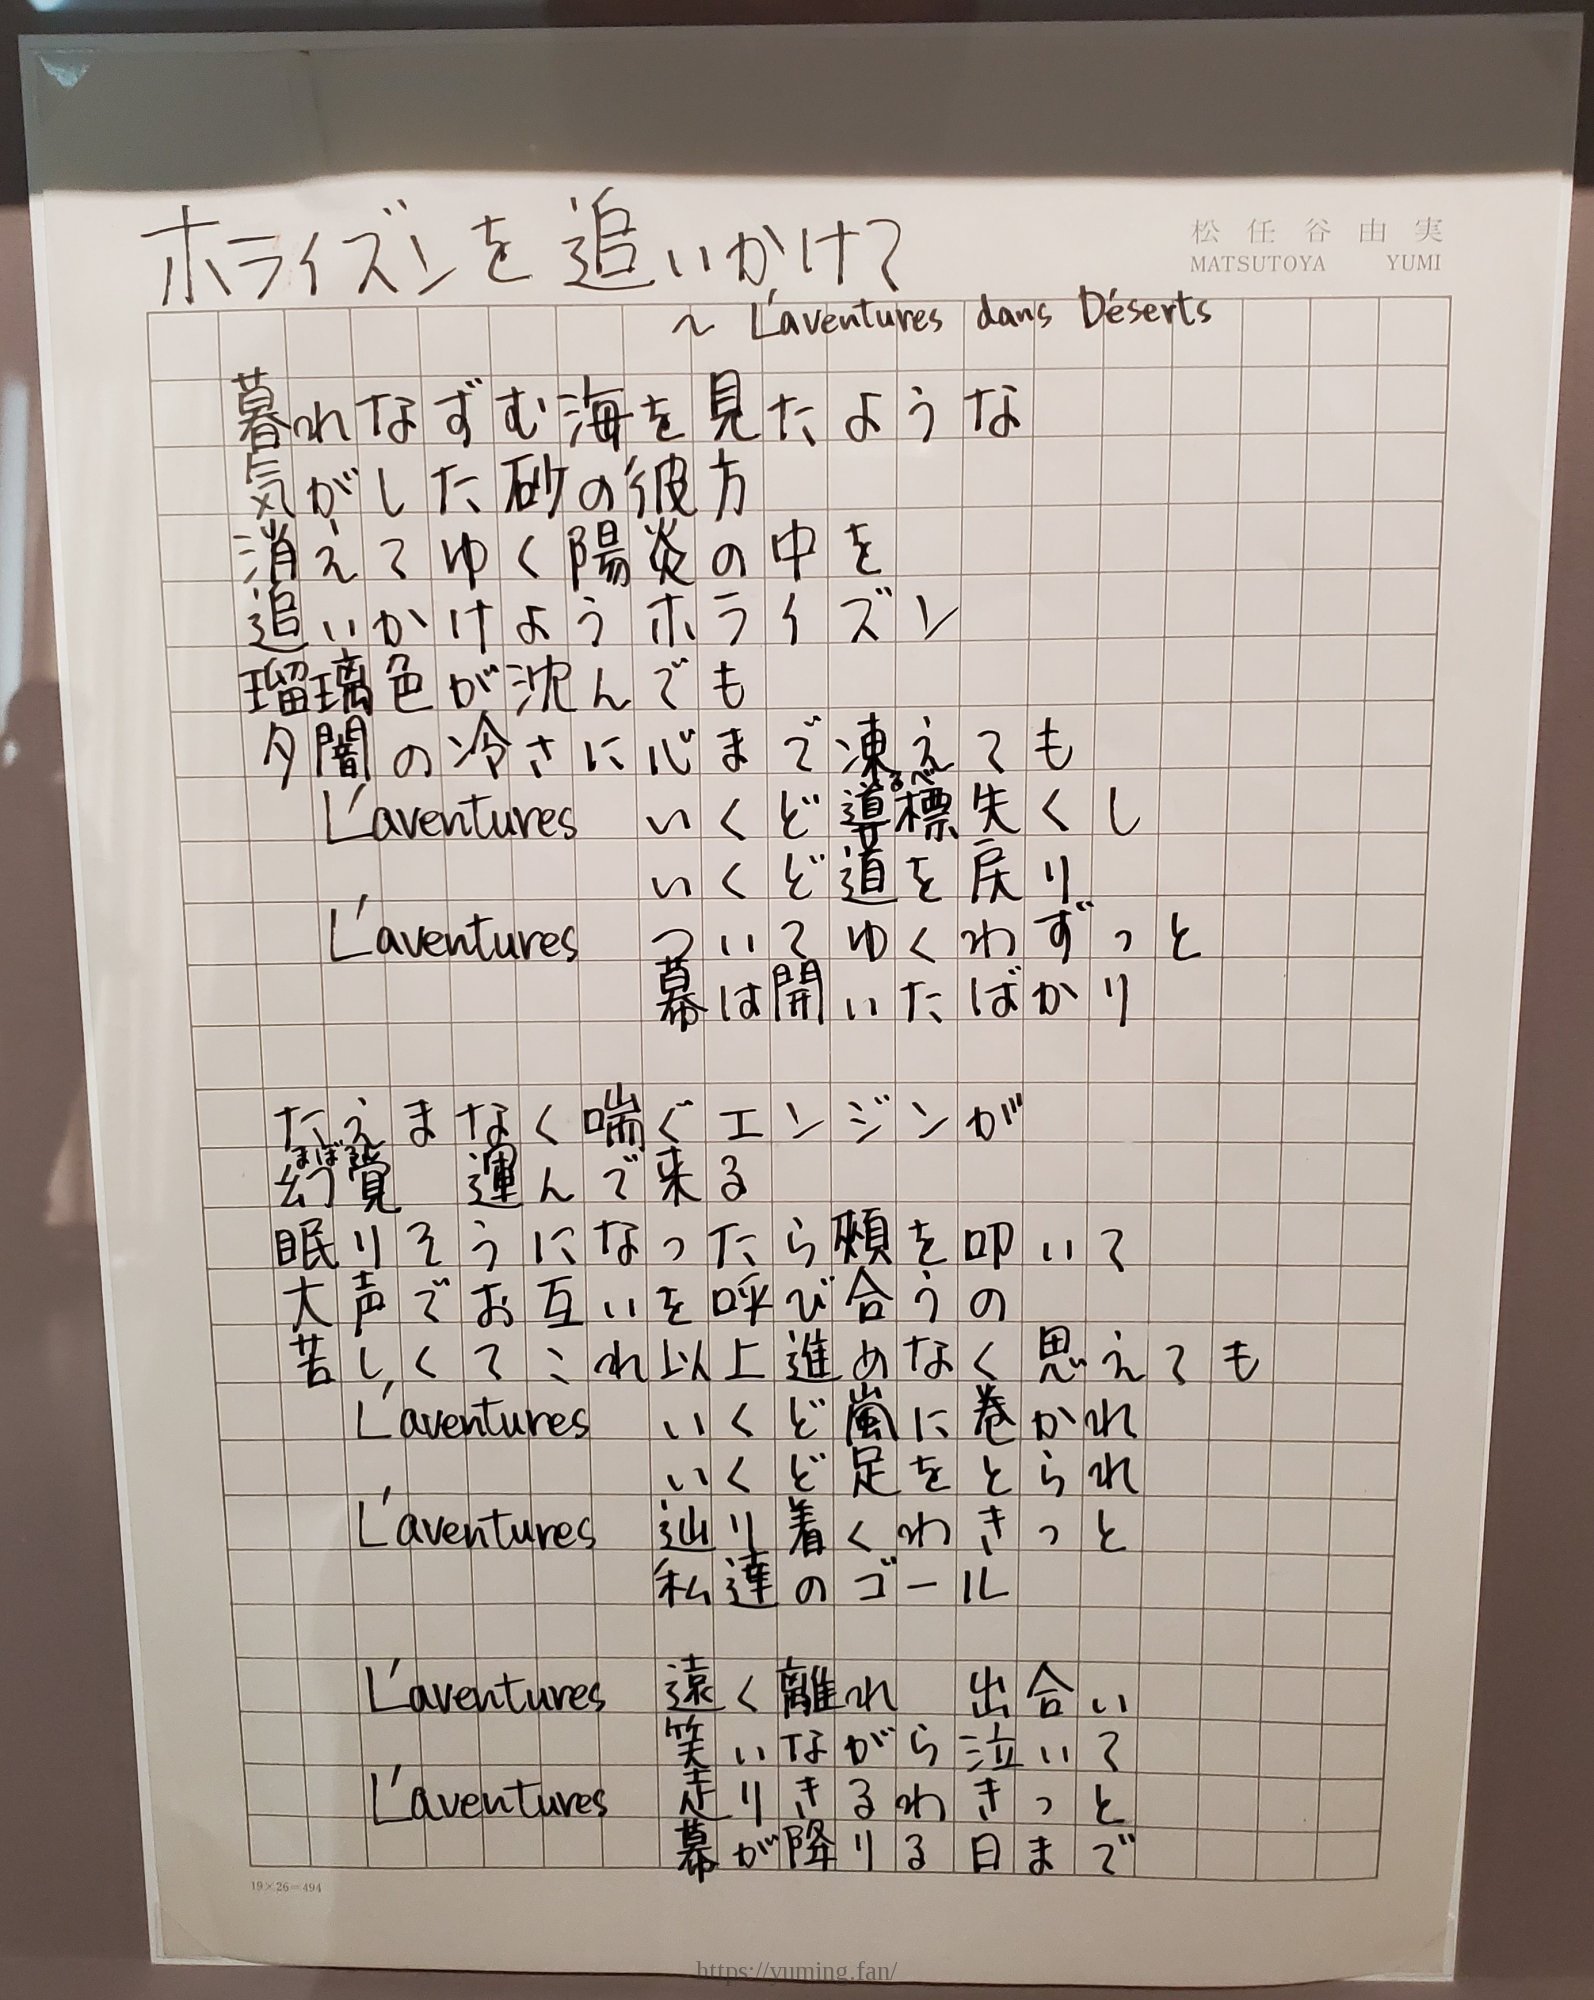 ホライズンを追いかけて
松任谷由実
MATSUTOYA YUMI
~ L'aventures dans Déserts
暮れなずむ海を見たような
気がした砂の彼方
消えてゆく陽炎の中を
追いかけようホライズン
瑠璃色が沈んでも
夕闇の冷さに心まで凍えても
るべ
L'aventures いくど導標失くし
いくど道を戻り
L'aventures ついてゆくわずっと
幕は開いたばかり
たえまなく喘ぐエンジンが
まぼろし
幻覚 運んで来る
眠りそうになったら頬を叩いて
大声でお互いを呼び合うの
苦しくてこれ以上進めなく思えても
L'aventures いくど嵐に巻かれ
いくど足をとられ
L'aventures 辿り着くわきっと
私達のゴール
L'aventures 遠く離れ 出合い
笑いながら泣いて
L'aventures 走りきるわきっと
幕が降りる日まで
19×26=494
https://yuming.fan/